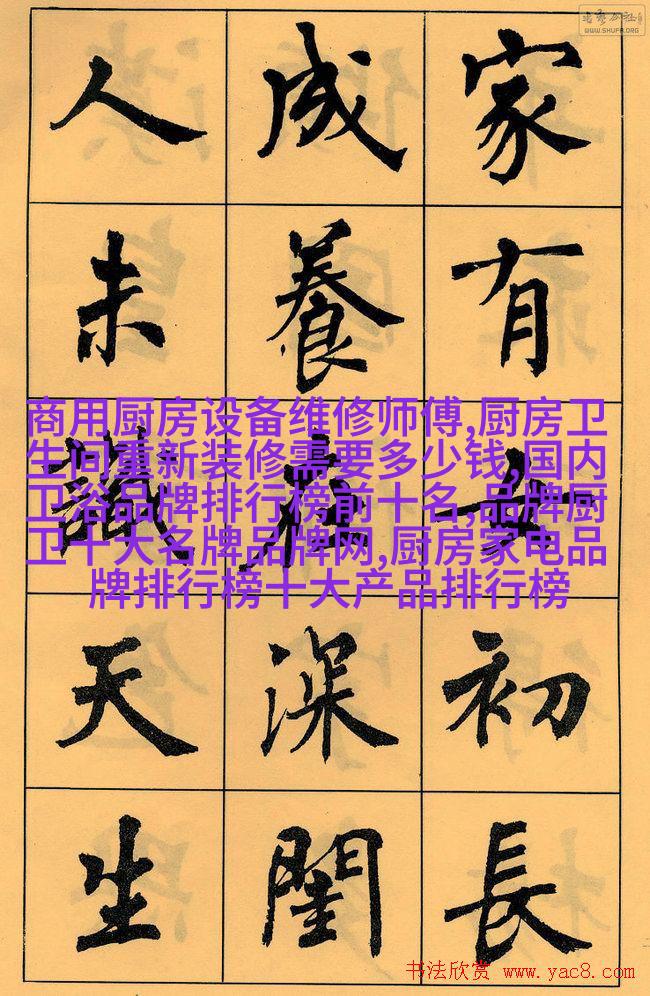 WWW.SHUFA.ORG
家有女初長
成養在深閨
人未識天生
商用厨房设备维修师傅,厨房卫
生间重新装修需要多少钱,国内
卫浴品牌排行榜前十名,品牌厨
卫十大名牌品牌网,厨房家电品
牌排行榜十大产品排行榜
书法欣赏 www.yac8.com